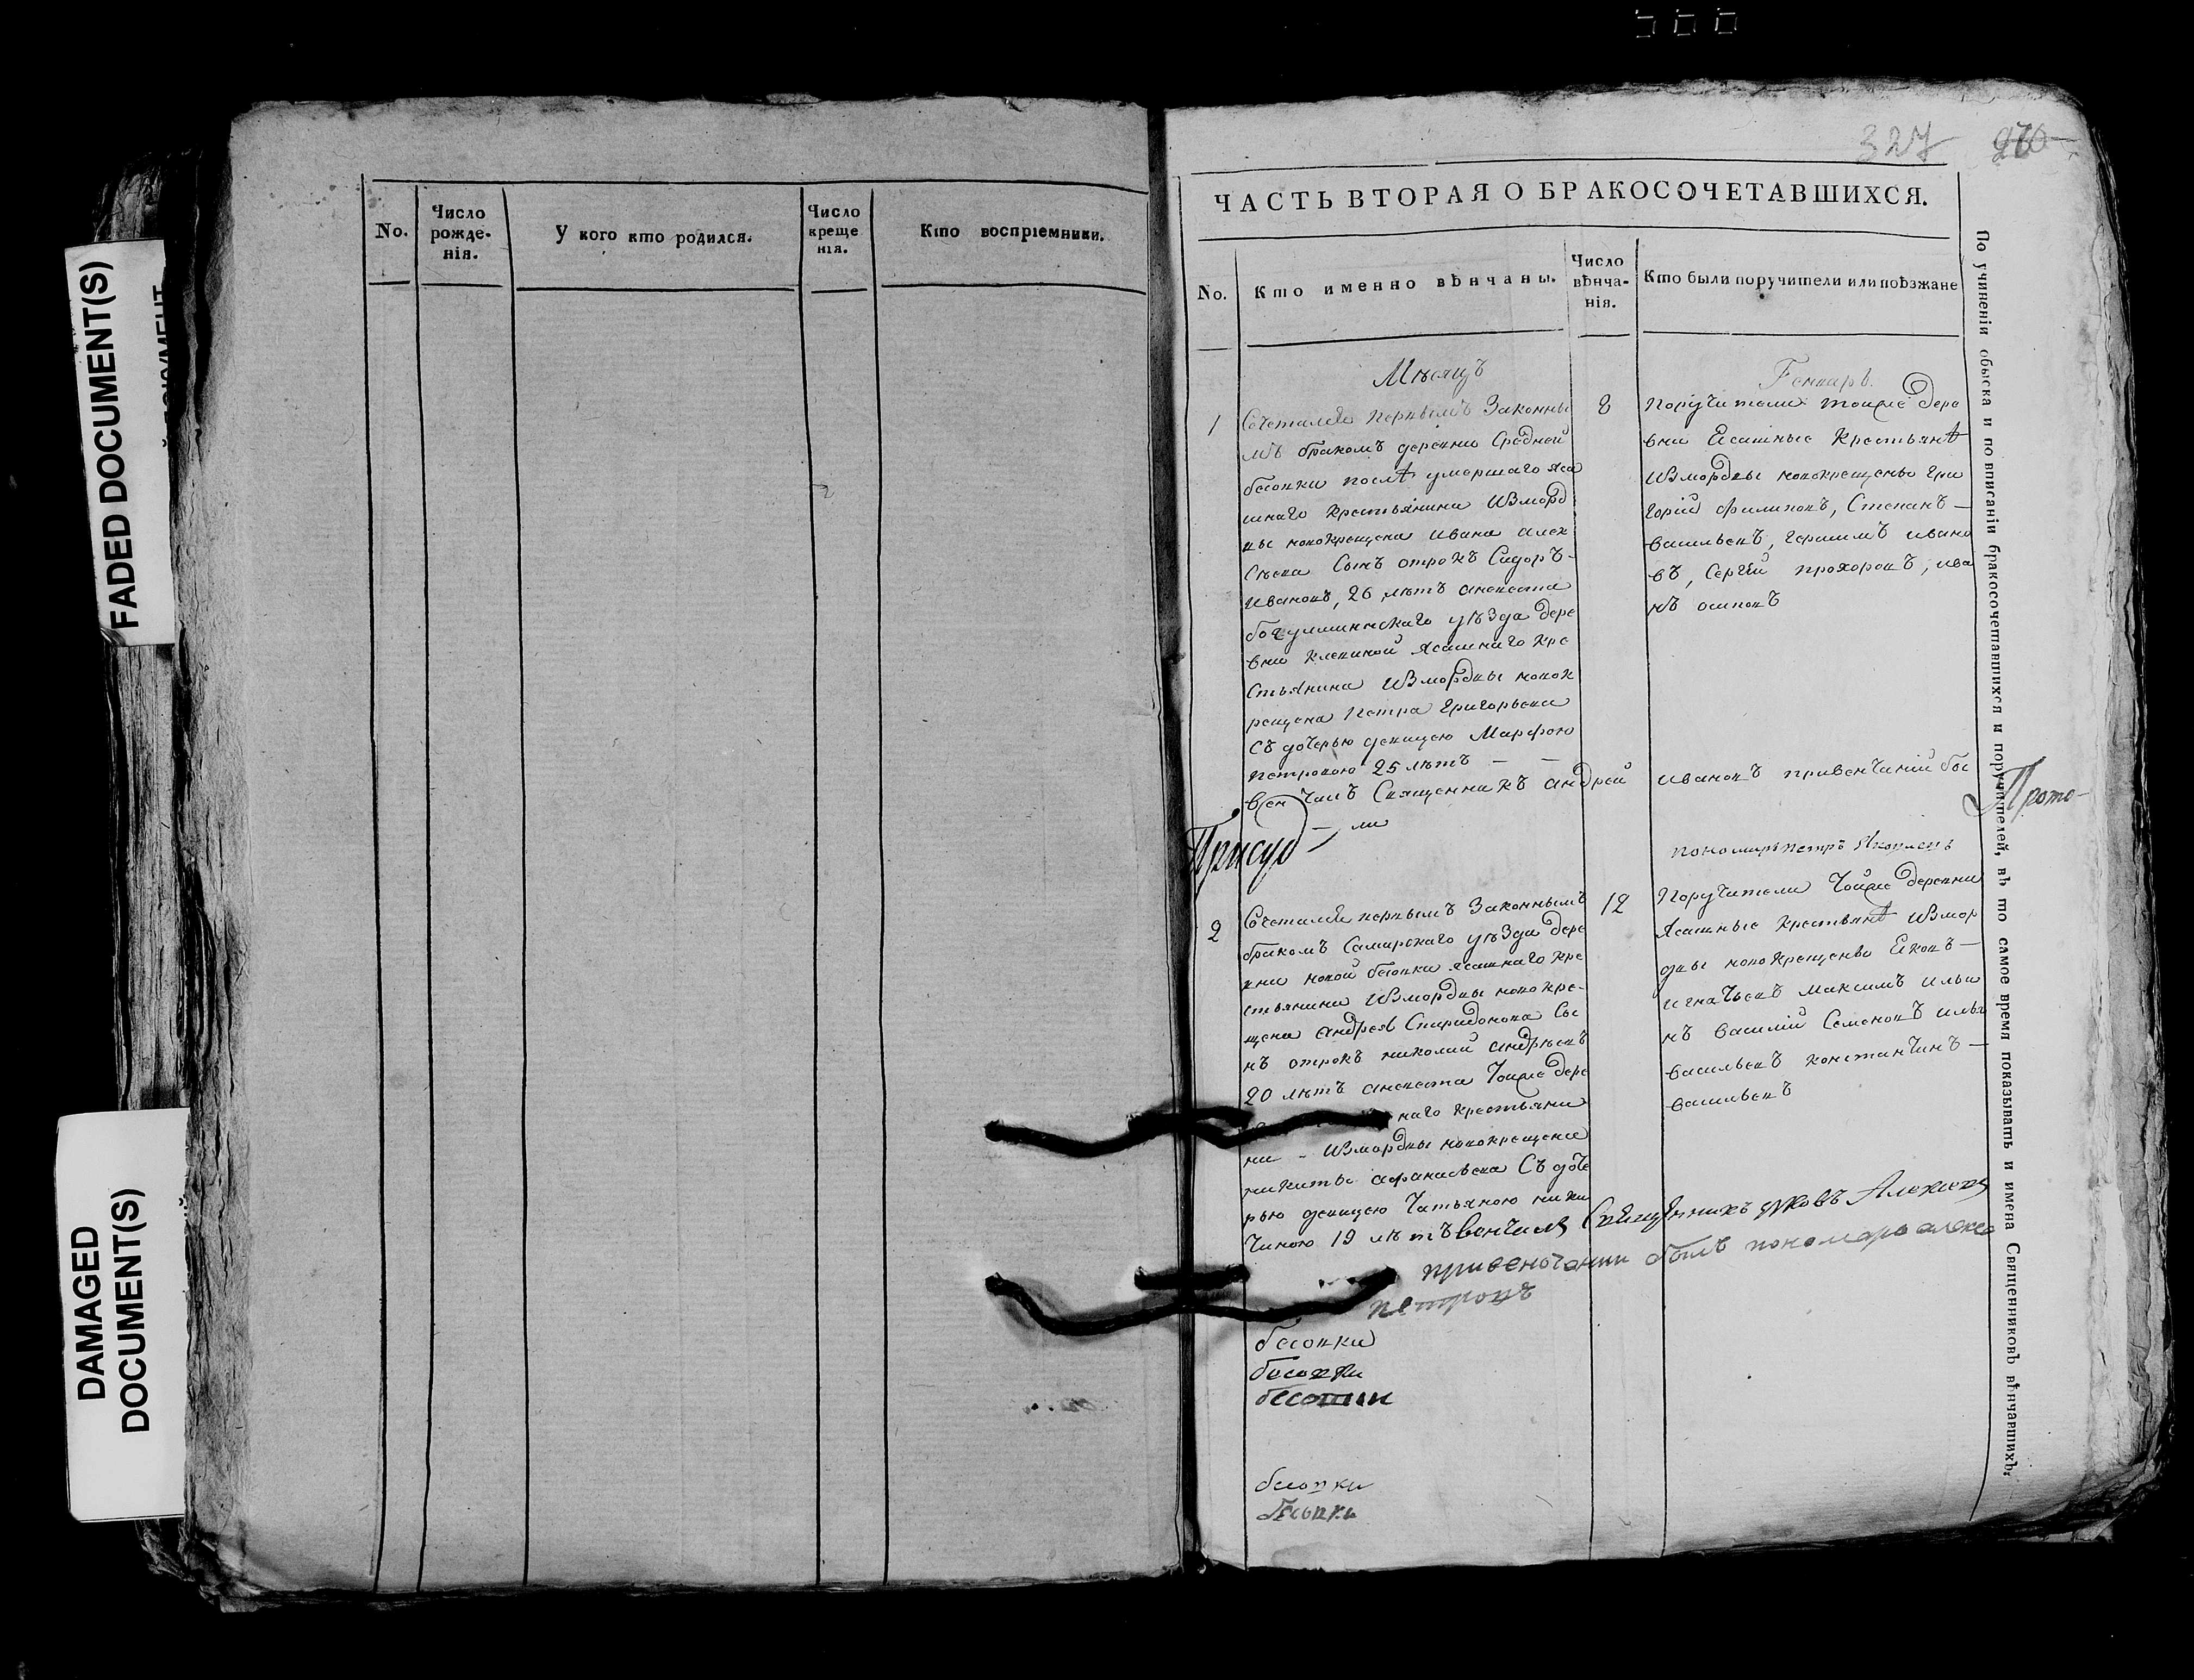 FADED DOCUMENT(S)
DAMAGED
DOCUMENT(S)
No.
Число
рожде-
нія.
У кого кто родился.
Число
креще
нія.
Кто воспріемники.
327
ЧАСТЬ ВТОРАЯ О БРАКОСОЧЕТАВШИХСЯ.
No.
Кто именно вѣнчаны.
Число
вѣнча-
нія.
Кто были поручители или поѣзжане
Мѣсяцъ
Генварь
1
Сочетался первымъ Законны
мъ бракомъ деревни Средней
бесовки послѣ умершаго яса
шнаго крестьянина Измορд
вы новокрещена ивана алек
сѣева сынъ отрокъ Сидоръ
ивановъ, 26 лѣтъ аневеста
богульминскаго уѣзда дере
вни клевиной ясашнаго кре
стьянина Измордвы новок
рещена петра григорьева
съ дочерью девицею Марфою
петровою 25 лѣтъ
венчалъ Священникъ андрей
8
поручители тоиже дере
вни Ясашные крестьянѣ
Измордвы новокрещены гри
горий филиповъ, Степанъ
васильевъ, герасимъ ивано
въ, Сергѣй прохоровъ, ива
нъ осиповъ
ивановъ привенчании бы
ли
Прото-
Присуд
пономарь петръ Яковлевъ
2
Сочетался первымъ Законнымъ
бракомъ Самарскаго уѣзда дере
вни новой бесовки ясашнаго кре
стьянина Измордвы новокре-
щена андрея Спиридонова Сы
нъ отрокъ николай андрѣевъ
20 лѣтъ аневеста Тоиже дере
наго крестьяни
на Измордвы новокрещена
никиты афанасьева Съ доче
рью девицею Татьяною ники
тиною 19 лѣтъ венчалъ Священникъ яковъ Алексея
привеночании былъ пономарь алексе
петровъ
12
Поручители Тоиже деревни
Ясашные крестьянѣ Измор
двы новокрещены Яковъ
игнатьевъ максимъ ильи
нъ василий Семеновъ илья
васильевъ константинъ
васильевъ
бесовки
бесовки
бесовки
бесовки
По учиненіи обыска и по вписаніи бракосочетавшихся и поручителей, въ то самое время показывать и имена Священниковъ вѣнчавшихъ.